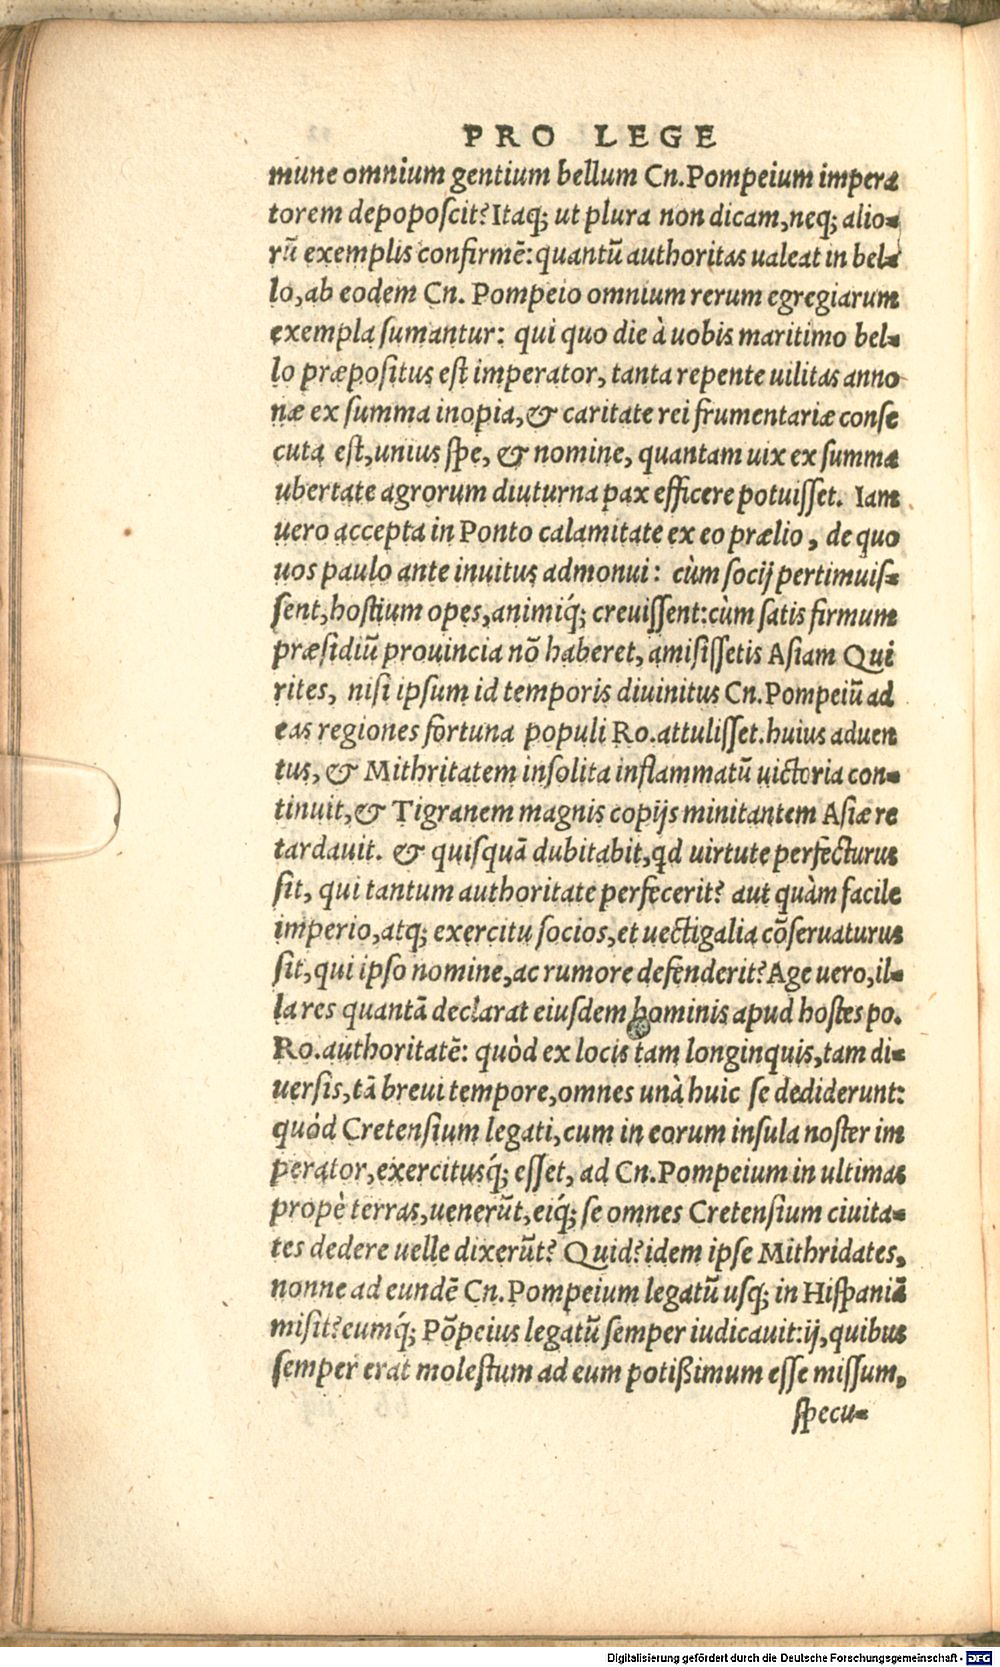 PRO LEGE
mune omnium gentium bellum Cn.Pompeium impera
torem depoposcit?Itaq; ut plura non dicam,neq; alio-
rū exemplis confirmē:quantū authoritas ualeat in bel-
lo,ab eodem Cn. Pompeio omnium rerum egregiarum
exempla sumantur: qui quo die à uobis maritimo bel-
lo præpositus est imperator, tanta repente uilitas anno
næ ex summa inopia,& caritate rei frumentariæ conse
cuta est,unius spe, & nomine, quantam uix ex summa
ubertate agrorum diuturna pax efficere potuisset. Iam
uero accepta in Ponto calamitate ex eo prælio, de quo
uos paulo ante inuitus admonui: cùm socij pertimuis-
sent,hostium opes,animiq́; creuissent:cùm satis firmum
præsidiū prouincia nō haberet, amisissetis Asiam Qui
rites, nisi ipsum id temporis diuinitus Cn.Pompeiū ad
eas regiones fortuna populi Ro.attulisset.huius aduen
tus, & Mithritatem insolita inflammatū uictoria con-
tinuit,& Tigranem magnis copijs minitantem Asiæ re
tardauit. & quisquā dubitabit,qd uirtute perfecturus
sit, qui tantum authoritate perfecerit? aut quàm facile
imperio,atq; exercitu socios,et uectigalia cōseruaturus
sit,qui ipso nomine,ac rumore defenderit?Age uero,il-
la res quantā declarat eiusdem hominis apud hostes po.
Ro.authoritatē: quòd ex locis tam longinquis,tam di-
uersis,tā breui tempore,omnes unà huic se dediderunt:
quòd Cretensium legati,cum in eorum insula noster im
perator,exercitusq́; esset, ad Cn.Pompeium in ultimas
propè terras,uenerūt,eiq́; se omnes Cretensium ciuita-
tes dedere uelle dixerūt? Quid?idem ipse Mithridates,
nonne ad eundē Cn.Pompeium legatū usq; in Hispaniā
misit?eumq́; Pōpeius legatū semper iudicauit:ij,quibus
semper erat molestum ad eum potißimum esse missum,
specu-
Digitalisierung gefördert durch die Deutsche Forschungsgemeinschaft - DFG